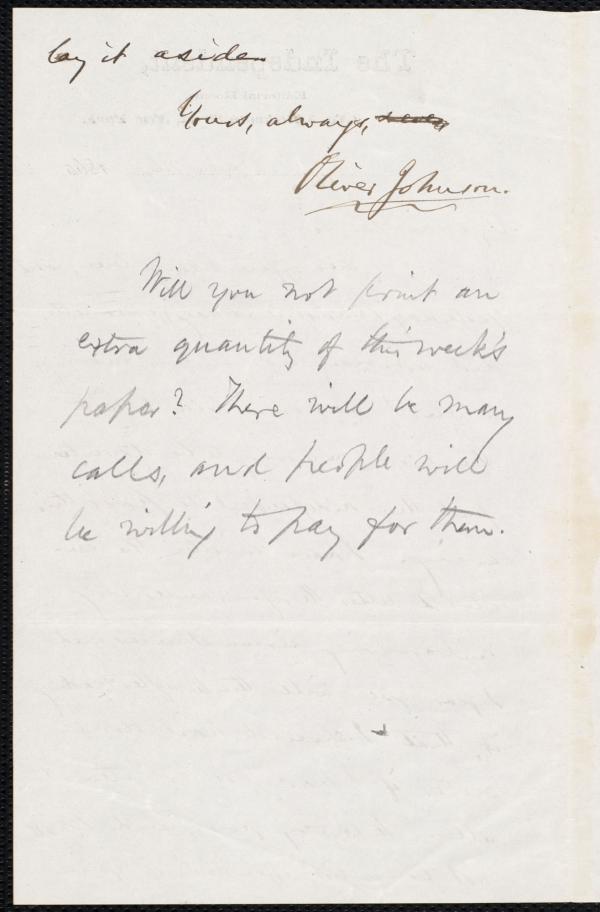 lay it aside.
Yours, always,
Oliver Johnson.
Will you not print an
extra quantity of this week's
paper? There will be many
calls, and people will
be willing to pay for them.